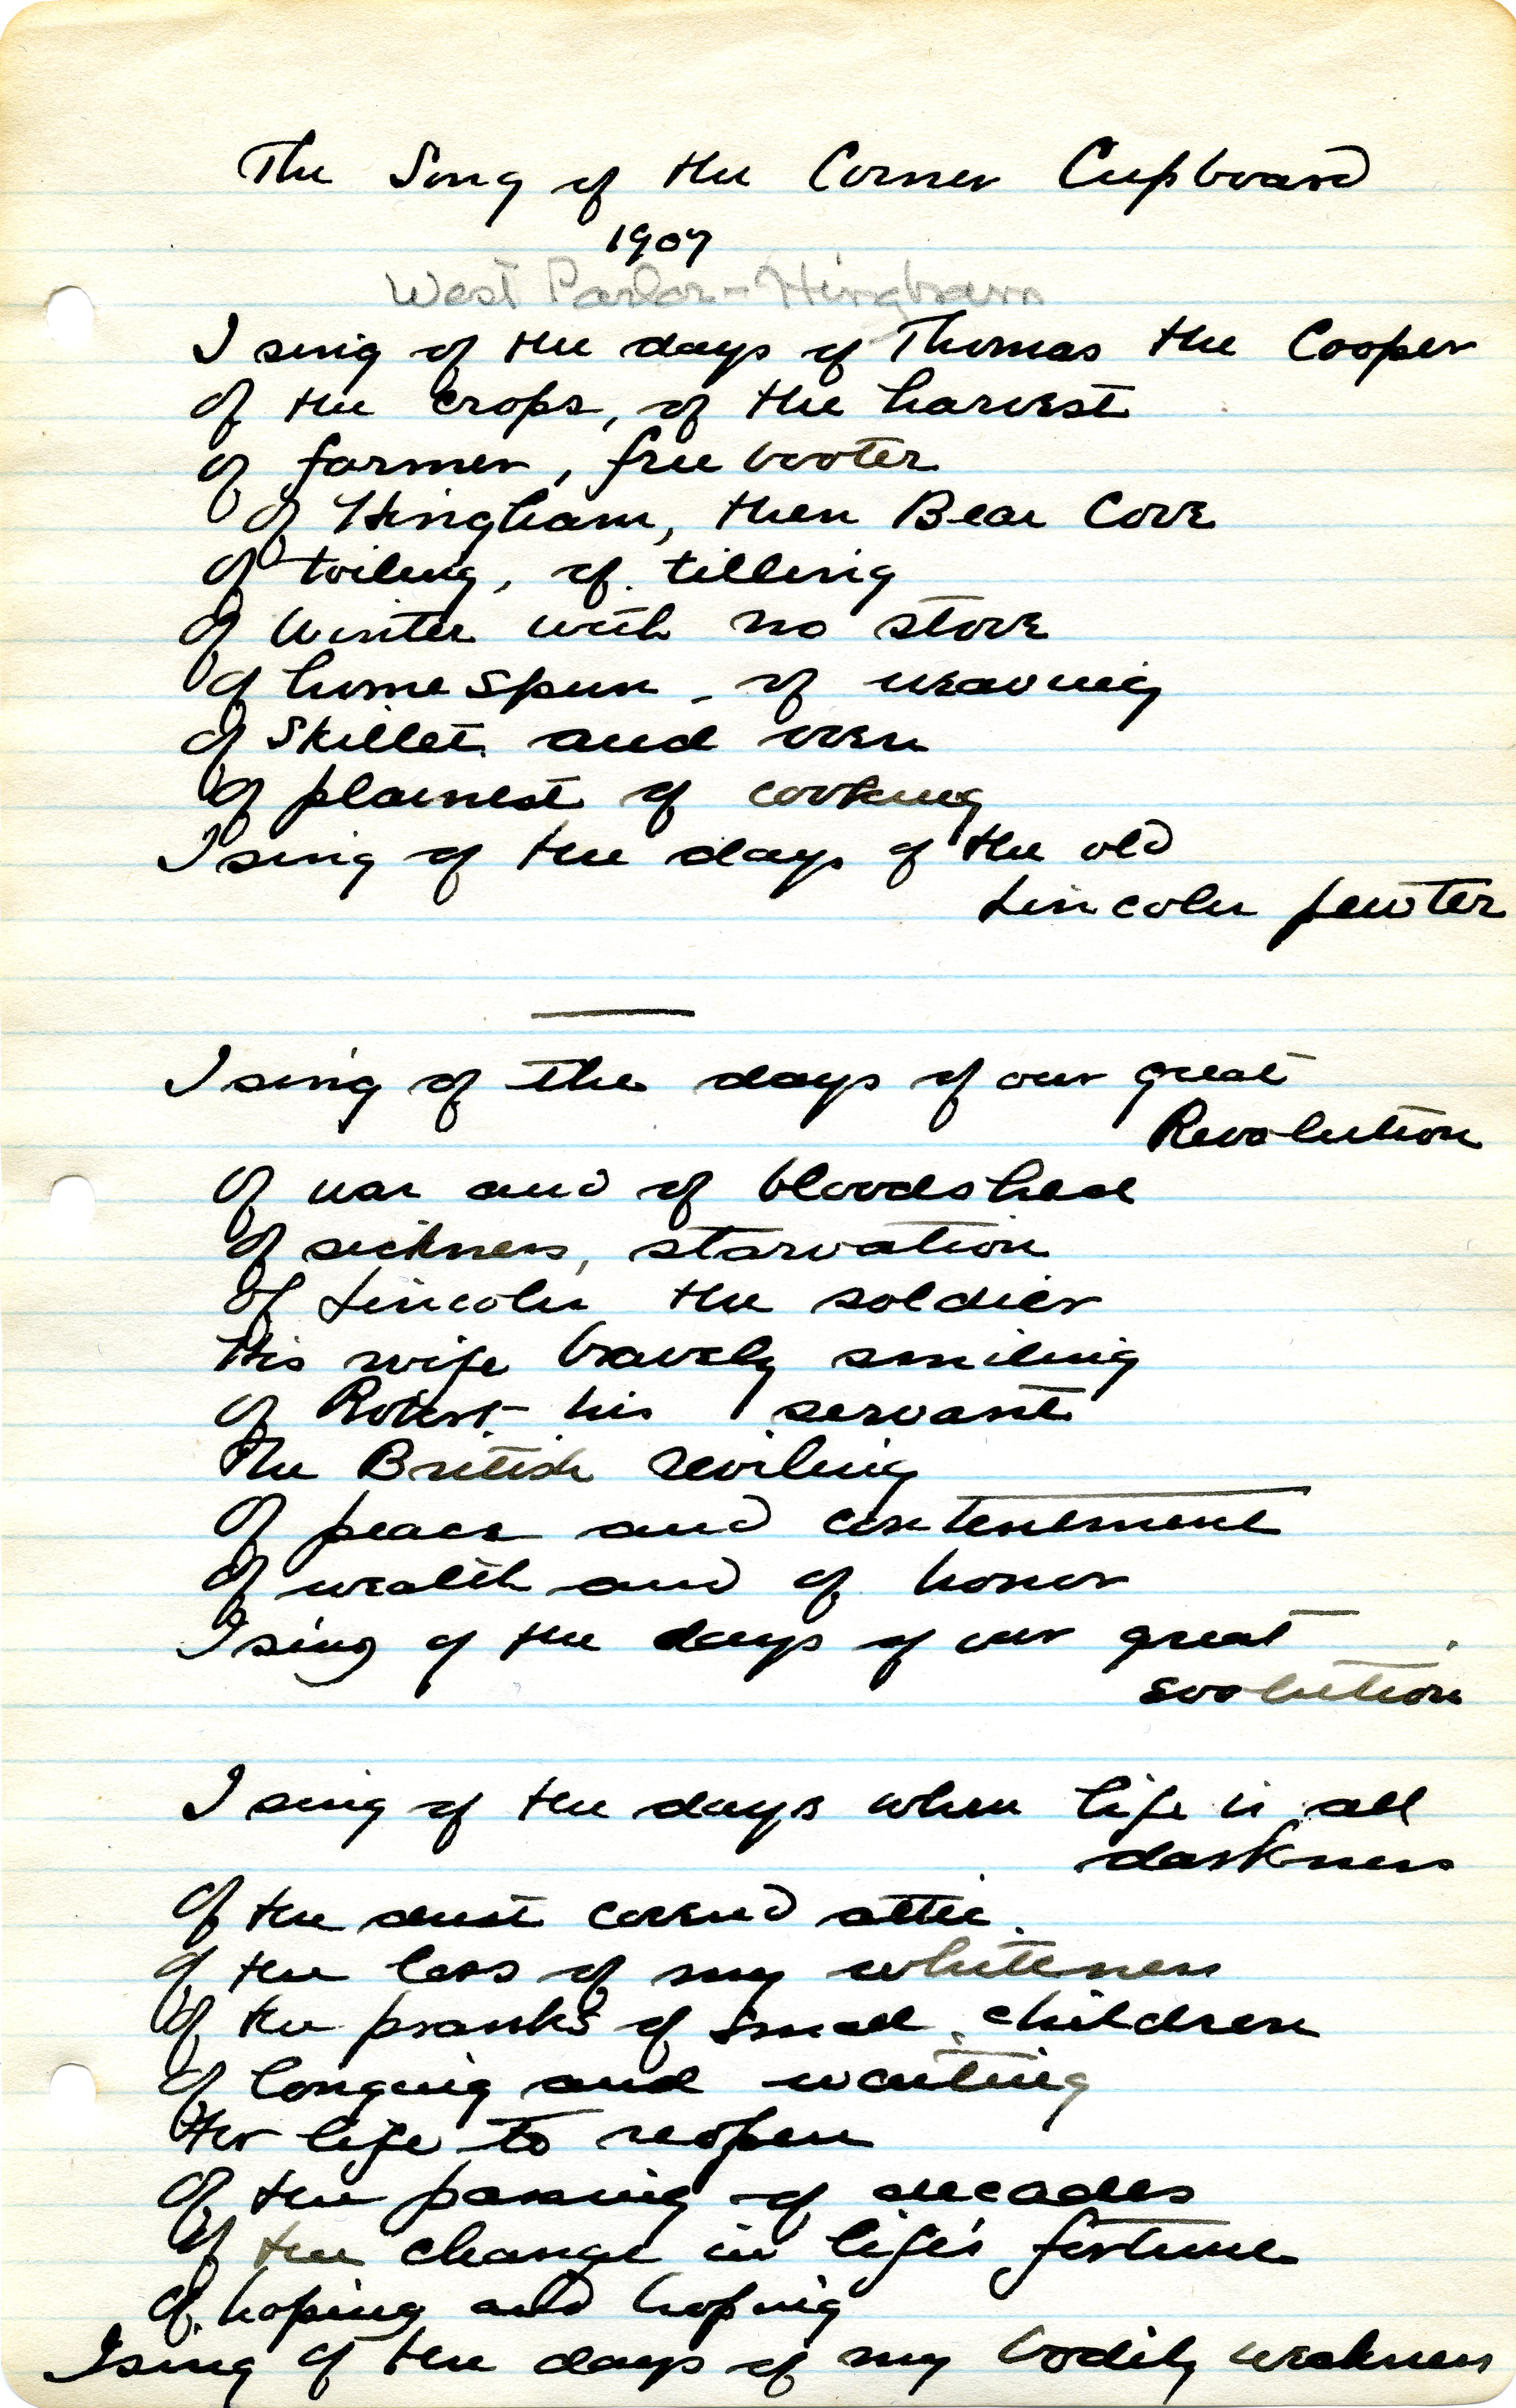 The Song of the Corner Cupboard
1907
West Parlor - Hingham
I sing of the days of Thomas the Cooper
of the crops, of the harvest
of farmer, free booter
of Hingham, then Bear Cove
of toiling, of tilling
of Winter with no stove
of home spun - of weaving
of Skillet and oven
of plainest of cooking
I sing of the days of the old
Lincoln pewter
I sing of the days of our great
Revolution
Of war and of bloodshed
Of sickness, starvation
Of Lincoln the soldier
His wife bravely smiling
Of Robert his servant
The British reviling
Of peace and contentement
Of wealth and of honor
I sing of the days of our great
evolution
I sing of the days when life is all
darkness
Of the dust covered attic.
Of the loss of my whiteness
Of the pranks of small children
Of longing and waiting
For life to reopen
Of the passing of decades
Of the change in life's fortune
Of hoping and hoping
I sing of the days of my bodily weakness